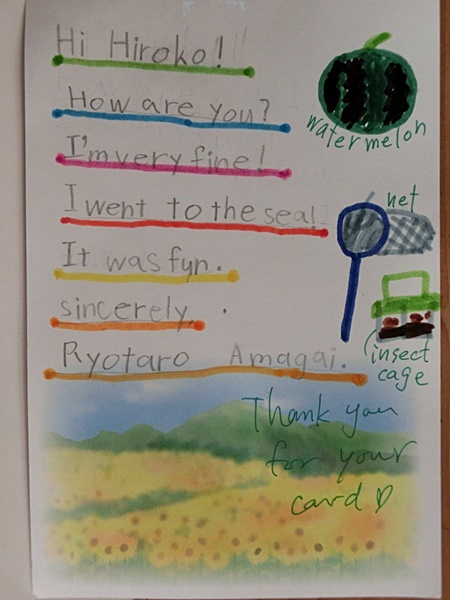 Hi Hiroko!
How are you?
I'm very fine!
I went to the sea!
It was fun.
sincerely,
Ryotaro Amagai.
watermelon
net
insect
cage
Thank you
for your
card